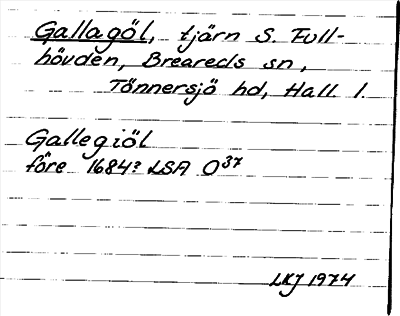 Gallagöl, tjärn S. Full-
hövden, Breareds sn,
Tönnersjö hd, Hall l.
Gallegiöl
före 1684? LSA O37
LKJ 1974